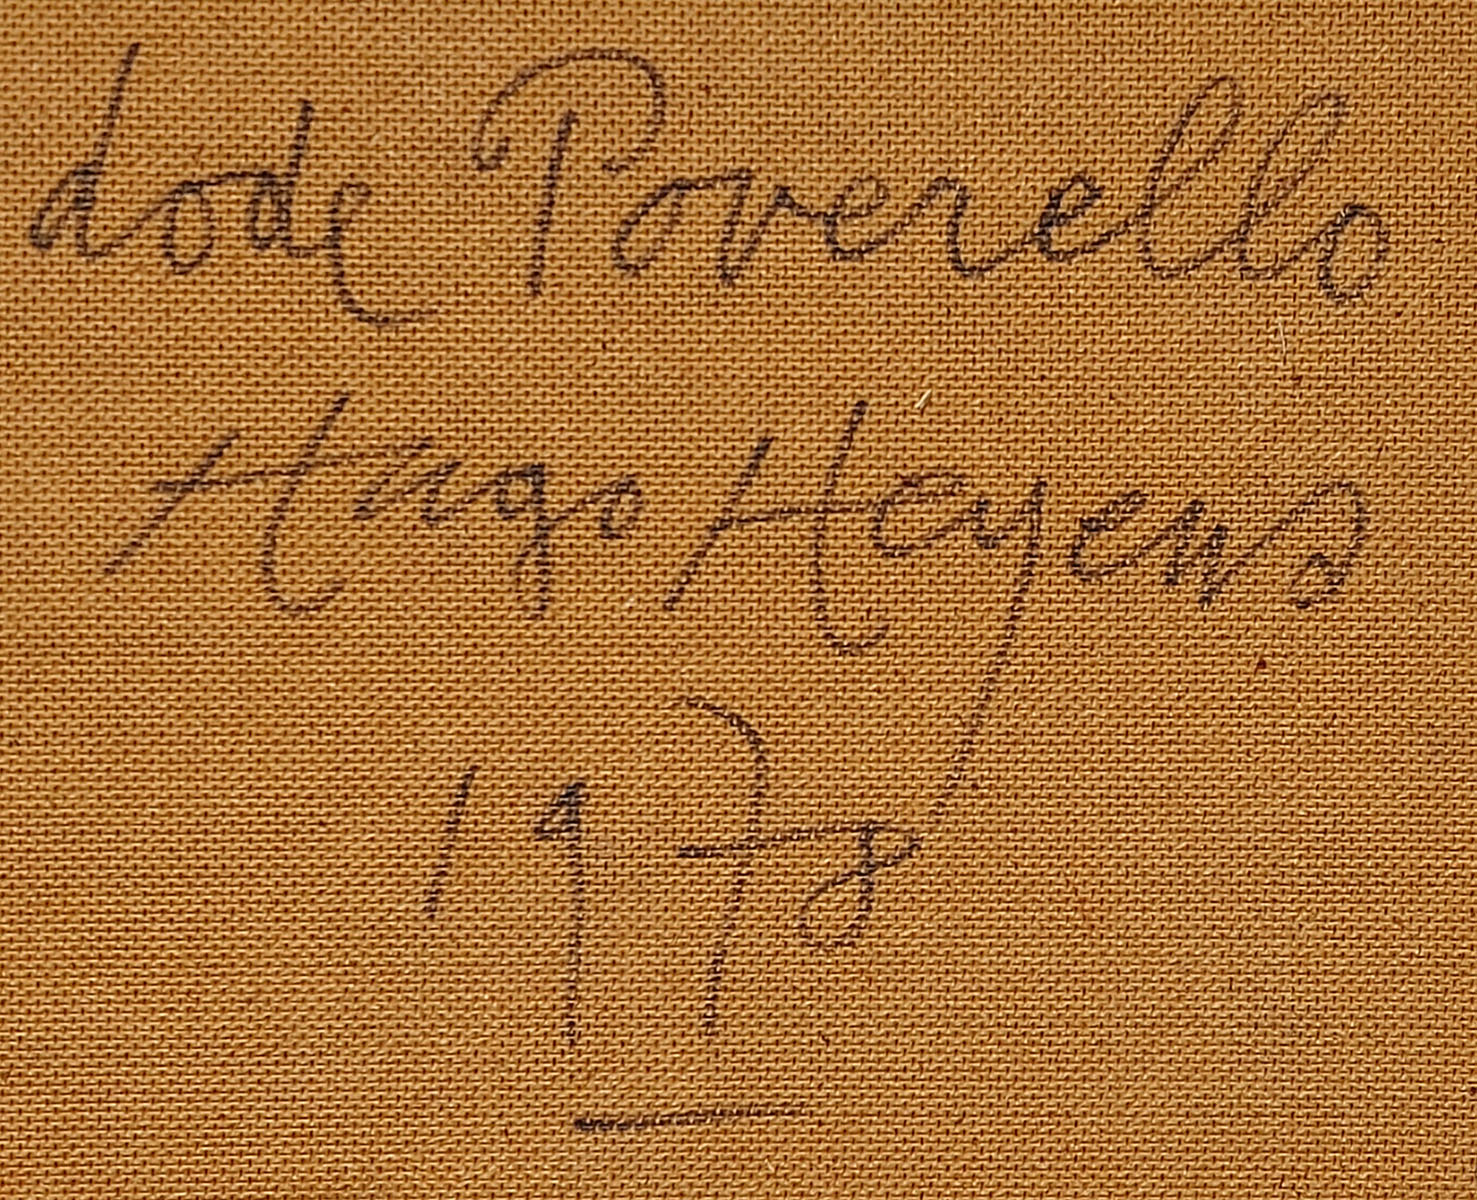 dode Poverello
Hugo Heyens
1978